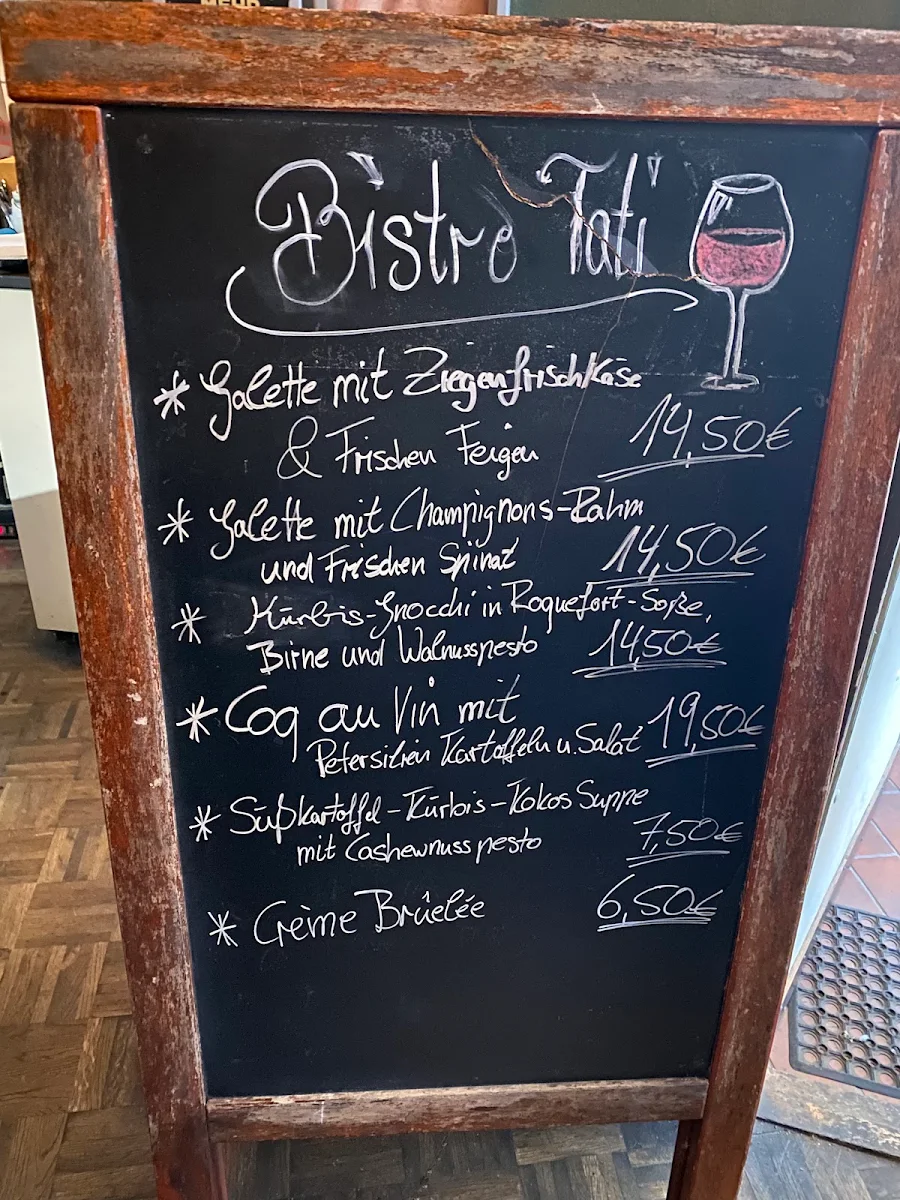 MEHR
Bistro Tati
* Galette mit Ziegenfrischkäse
& Frischen Feigen 14,50€
* Galette mit Champignons-Rahm
und Frischen Spinat 14,50€
* Kürbis-Gnocchi in Roquefort-Soße,
Birne und Walnusspesto 14,50€
* Coq au Vin mit
Petersilien Kartoffeln u. Salat 19,50€
* Süßkartoffel-Kürbis-Kokos Suppe
mit Cashewnusspesto 7,50€
* Crème Brûelée 6,50€